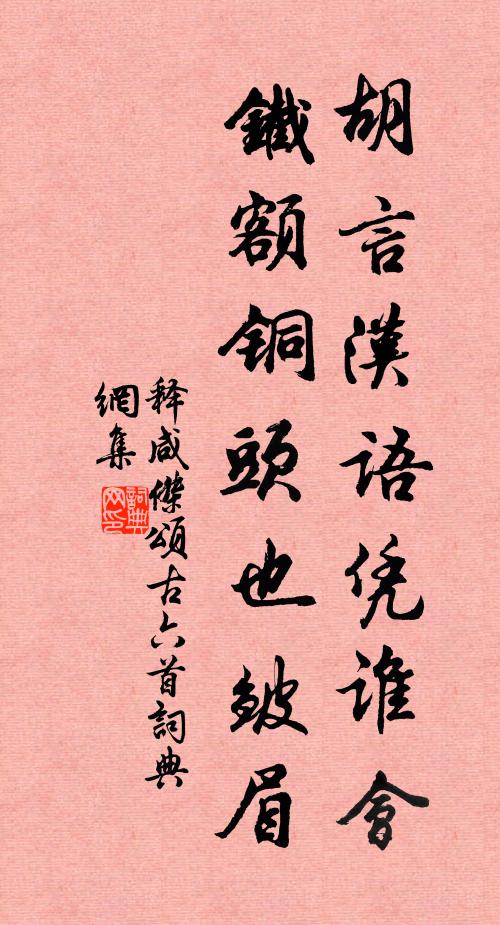 胡言漢語凭誰會
鐵額銅頭也皺眉
释咸傑頌古六首詞典
網集
詞典
网印